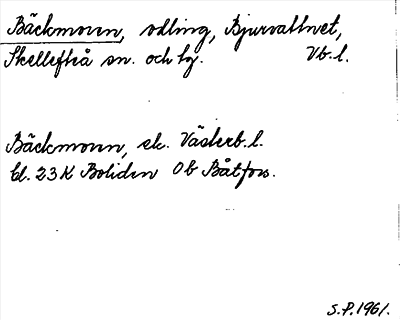 Bäckmoren, odling, Bjurvattnet,
Skellefteå sn. och tg. Vb.l.
Bäckmoren, ek. Västerb.l.
bl. 23 K Boliden Ob Båtfors.
S.P.1961.